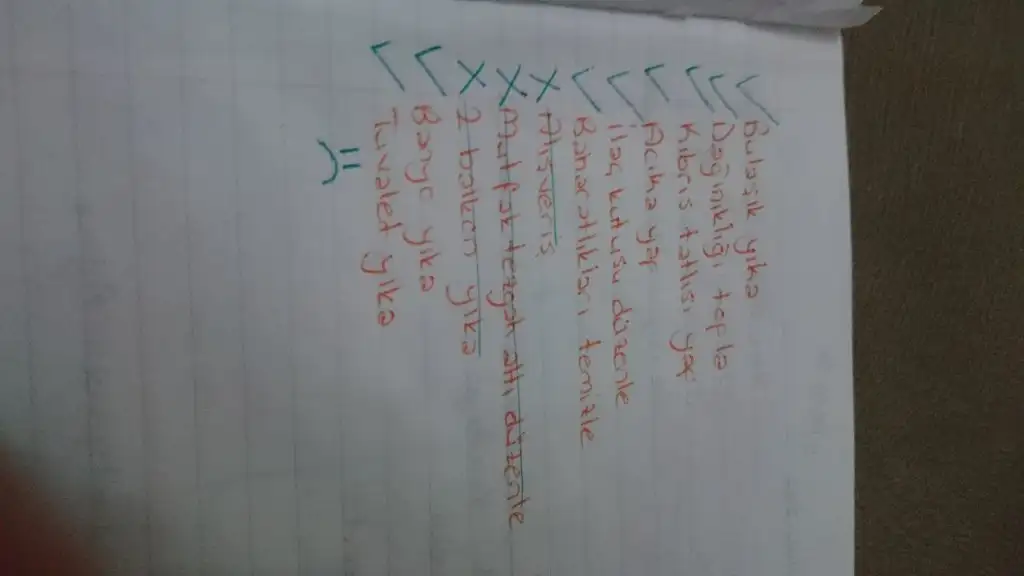 ✓ Bulaşık yıka
✓ Dağınıklığı topla
✓ Kıbrıs tatlısı yap
✓ Acika yap
✓ İlaç kutusu düzenle
✓ Baharatlıkları temizle
× Alışveriş
× Mutfak tezgah altı düzenle
× 2 balkon yıka
✓ Banyo yıka
✓ Tuvalet yıka
:(